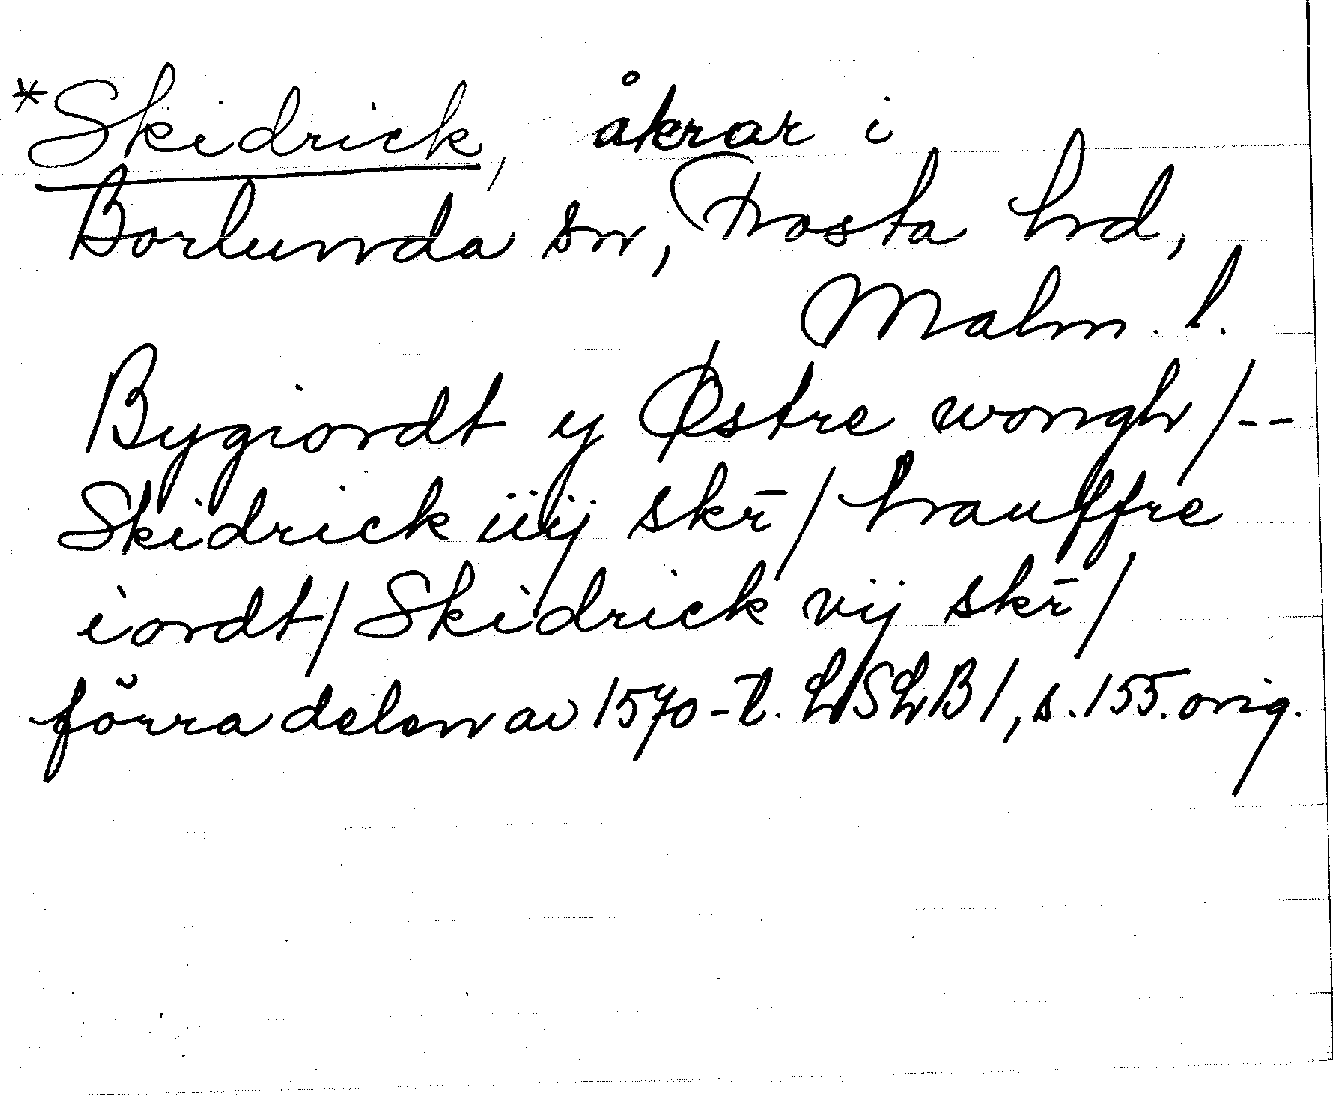 *Skidrick, åkrar i
Borlunda sn, Frosta hd,
Malm. l.
Bygiordt y Østre wongh /--
Skidrick iiij skr̄ / hauffre
iordt / Skidrick vij skr̄ /
förra delen av 1570-t. LSLB 1, s. 155. orig.